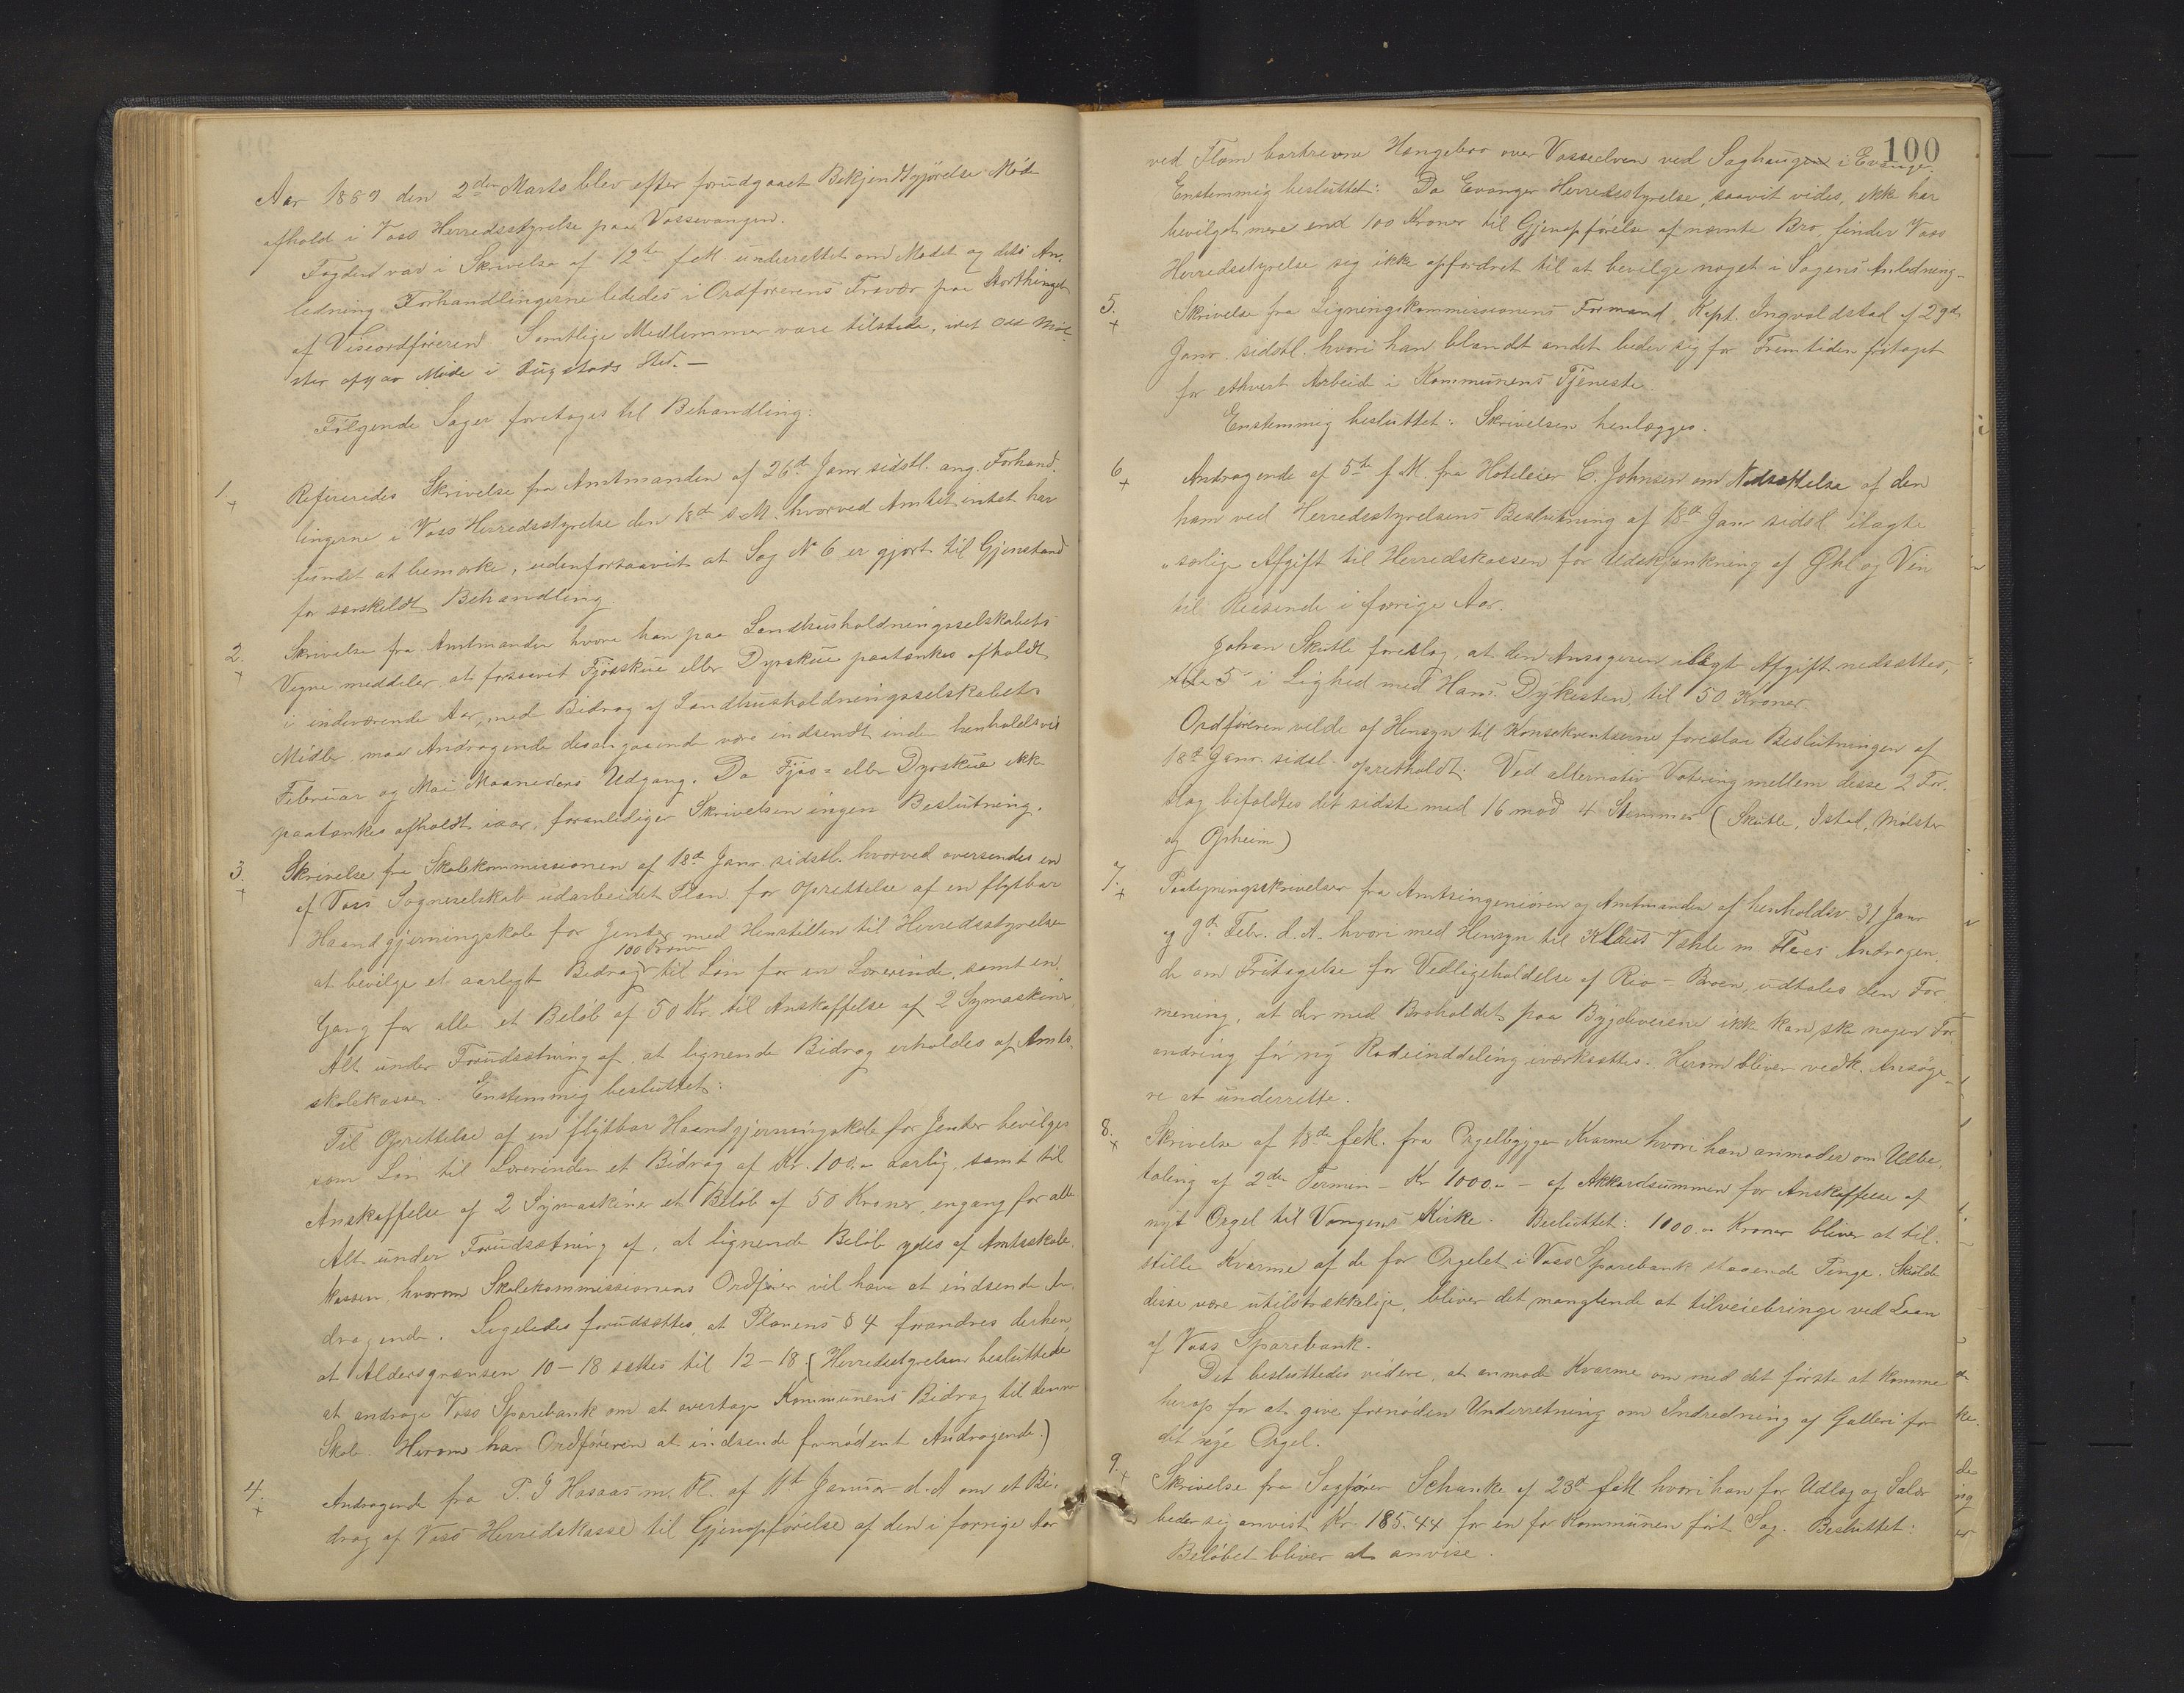 Aar 1889 den 2den Marts blev efter forudgaaet Bekjendtgjörelse Möde
afhold i Voss Herredsstyrelse paa Vossevangen.
Fogden var i Skrivelse af 12te f.M. underrettet om Mödet og dets An-
ledning. Forhandlingerne lededes i Ordförerens Fravær paa Storthinget
af Viceordföreren. Samtlige Medlemmer vare tilstede, idet Odd Möl-
ster afgav Möde i Rugstads Sted. —
Fölgende Sager foretages til Behandling:
1.
+
Refereredes Skrivelse fra Amtmanden af 26de Janr sidstl. ang. Forhand-
lingerne i Voss Herredsstyrelse den 18de s.M. hvorved Amtet intet har
fundet at bemærke, udenforsaavit at Sag No 6 er gjort til Gjenstand
for særskildt Behandling.
2.
+
Skrivelse fra Amtmanden hvori han paa Landhusholdningsselskabets
Vegne meddeler, at forsaavit Fjösskue eller Dyrskue paatænkes afholdt
i indeværende Aar, med Bidrag af Landhusholdningsselskabets
Midler, maa Andragende desangaaende være indsendt inden henholdsvis
Februar og Mai Maaneders Udgang. Da Fjös- eller Dyrskue ikke
paatænkes afholdt iaar, foranlediger Skrivelsen ingen Beslutning.
3.
+
Skrivelse fra Skolekommissionen af 18de Janr. sidstl. hvorved oversendes en
af Voss Sogneselskab udarbeidet Plan for Oprettelse af en flytbar
Haandgjerningskole for Jenter med Henstillen til Herredsstyrelsen
100 Kroner
at bevilge et aarlegt Bidrag til Lön for en Lærerinde, samt en
Gang for alle et Belöb af 50 Kr. til Anskaffelse af 2 Symaskiner,
Alt under Forudsætning af, at lignende Bidrag erholdes af Amts-
skolekassen. Enstemmig besluttet:
Til Oprettelse af en flytbar Haandgjerningskole for Jenter bevilges
som Lön til Lærerinden et Bidrag af Kr. 100.- aarlig, samt til
Anskaffelse af 2 Symaskiner et Belöb af 50 Kroner, engang for alle
Alt under Forudsætning af, at lignende Belöb ydes af Amtsskole-
kassen, hvorom Skolekommissionens Ordförer vil have at indsende An-
dragende. Ligeledes forudsættes, at Planens § 4 forandres derhen,
at Aldersgrænsen 10-18 sættes til 12-18 (Herredsstyrelsen besluttede
at andrage Voss Sparebank om at overtage Kommunens Bidrag til denne
Skole. Herom har Ordföreren at indsende fornödent Andragende.)
4.
+
Andragende fra T. J. Hasaas m. Fl. af 11te Januar d. A om et Bi-
drag af Voss Herredskasse til Gjenopförelse af den i forrige Aar
100
ved Flom bortrevne Hængebro over Vosseelven ved Saghaugen i Evanger.
Enstemmig besluttet: Da Evanger Herredsstyrelse, saavit vides, ikke har
bevilget mere end 100 Kroner til Gjenopförelse af nævnte Bro, finder Voss
Herredsstyrelse sig ikke opfordret til at bevilge noget i Sagens Anledning.
5.
+
Skrivelse fra Ligningskommissionens Formand, Kapt. Ingvoldstad af 29de
Janr. sidstl. hvori han blandt andet beder sig for Fremtiden fritaget
for ethvert Arbeide i Kommunens Tjeneste.
Enstemmig besluttet: Skrivelsen henlægges.
6.
+
Andragende af 5te f.M. fra Hoteleier C. Johnsen om Nedsættelse af den
ham ved Herredsstyrelsens Beslutning af 18de Janr sidstl. ilagte
særlige Afgift til Herredskassen for Udskjænkning af Öhl og Vin
til Reisende i forrige Aar.
Johan Skutle foreslog, at den Ansögeren ilagte Afgift nedsættes,
i Lighed med Hans Dykesten, til 50 Kroner.
Ordföreren vilde af Hensyn til Konsekventserne foreslaa Beslutningen af
18de Janr. sidstl. opretholdt. Ved alternativ Votering mellem disse 2 For-
slag bifaldtes det sidste med 16 mod 4 Stemmer (Skutle, Istad, Mölster
og Opheim)
7.
+
Paategningsskrivelser fra Amtsingeniören og Amtmanden af henholdsv. 31 Janr
og 9de Febr. d. A. hvori med Hensyn til Klaus Væhle m. Fleres Andragen-
de om Fritagelse for Vedligeholdelse af Rio-Broen, udtales den For-
mening, at der med Broholdet paa Bygdeveiene ikke kan ske nogen For-
andring för ny Rodeinddeling iværksættes. Herom bliver vedk. Ansöge-
re at underrette.
8.
+
Skrivelse af 18de f.M. fra Orgelbygger Kvarme hvori han anmoder om Udbe-
taling af 2den Termin - Kr 1000.- - af Akkordsummen for Anskaffelse af
nyt Orgel til Vangens Kirke. Besluttet: 1000.- Kroner bliver at til-
stille Kvarme af de for Orgelet i Voss Sparebank staaende Penge. Skulde
disse være utilstrækkelige, bliver det manglende at tilveiebringe ved Laan
af Voss Sparebank.
Det besluttedes videre, at anmode Kvarme om med det förste at komme
herop for at give fornöden Underretning om Indredning af Galleri for
det nye Orgel.
9.
+
Skrivelse fra Sagförer Schanke af 23de f.M hvori han for Udlæg og Salær
beder sig anvist Kr 185.44 for en for Kommunen fört Sag. Besluttet:
Belöbet bliver at anvise.